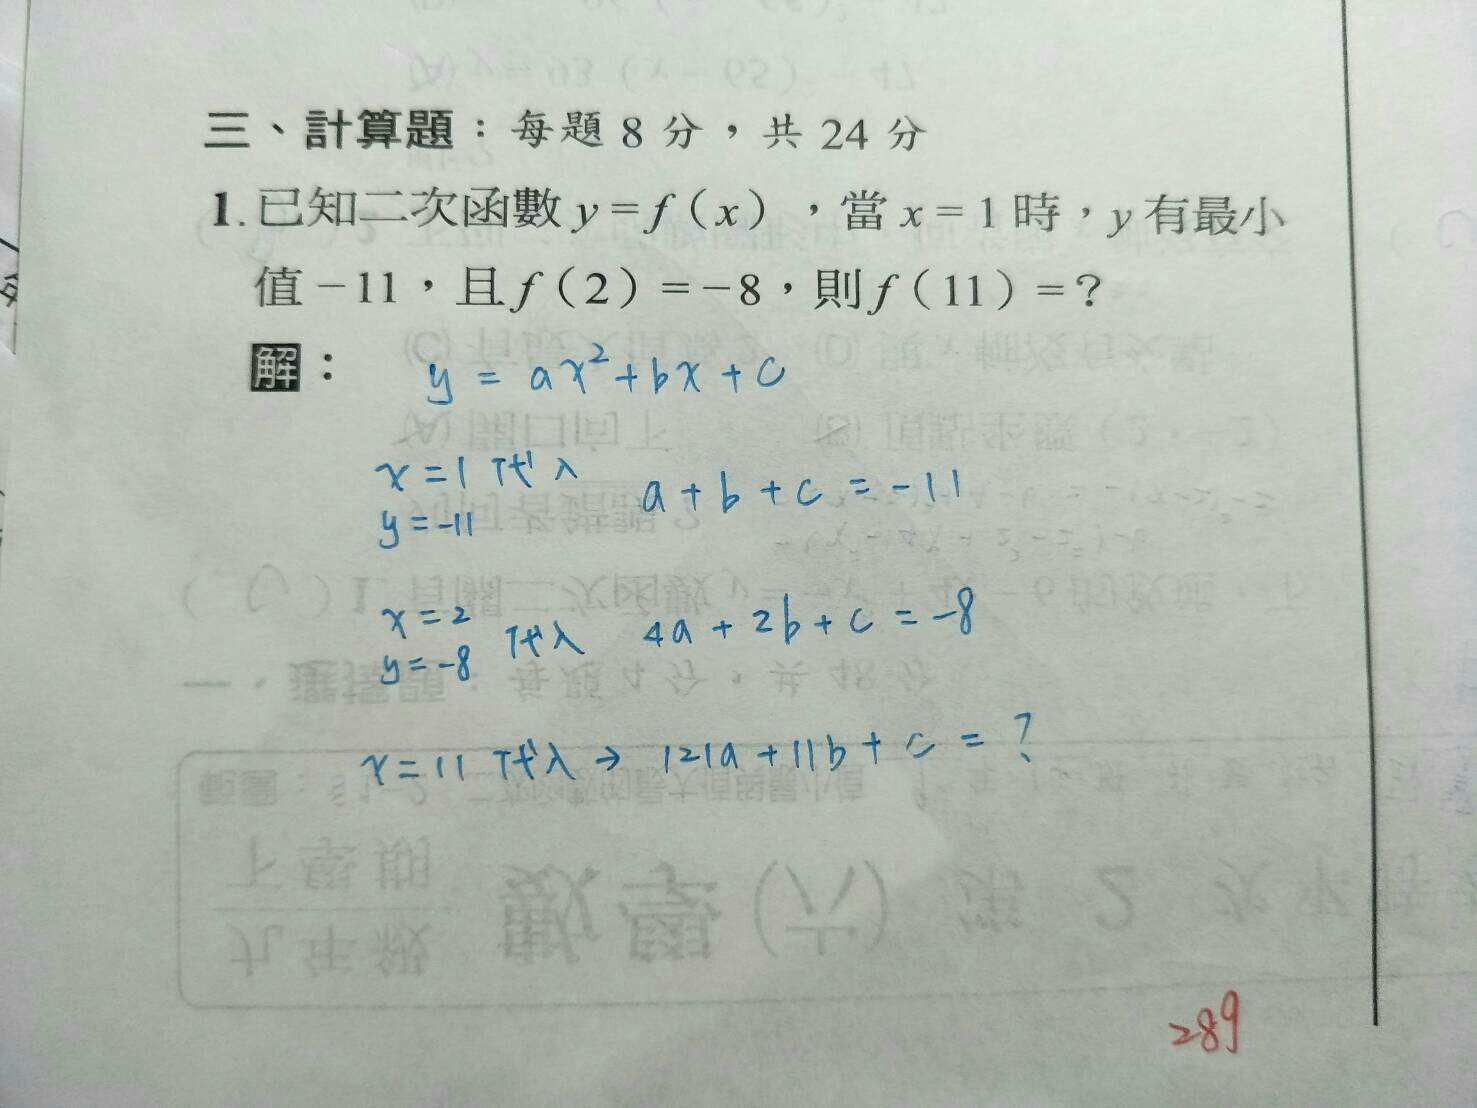 三、計算題：每題 8 分，共 24 分
1. 已知二次函數 y=f(x)，當 x=1 時，y 有最小
值－11，且 f(2)=－8，則 f(11)=？
解：
y = ax²+bx+c
x=1 代入 a+b+c=-11
y=-11
x=2
y=-8 代入 4a+2b+c=-8
x=11 代入→ 121a+11b+c=?
289